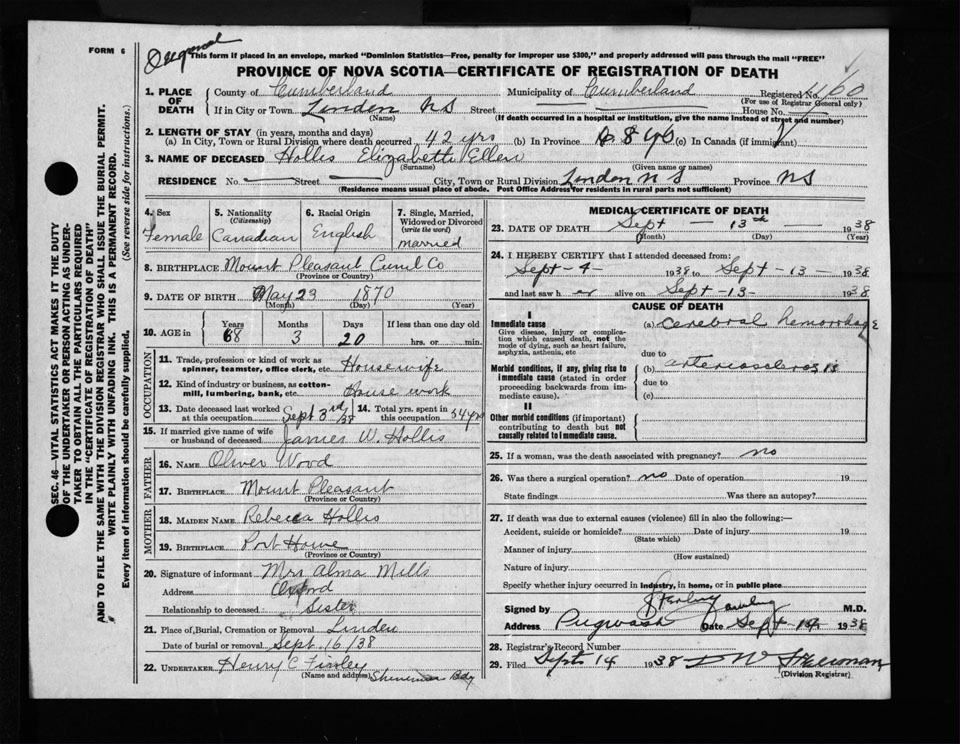 FORM 6
This form if placed in an envelope, marked "Dominion Statistics—Free, penalty for improper use $300," and properly addressed will pass through the mail "FREE"
PROVINCE OF NOVA SCOTIA—CERTIFICATE OF REGISTRATION OF DEATH
SEC. 46—VITAL STATISTICS ACT MAKES IT THE DUTY
OF THE UNDERTAKER OR PERSON ACTING AS UNDER-
TAKER TO OBTAIN ALL THE PARTICULARS REQUIRED
IN THE "CERTIFICATE OF REGISTRATION OF DEATH"
AND TO FILE THE SAME WITH THE DIVISION REGISTRAR WHO SHALL ISSUE THE BURIAL PERMIT.
WRITE PLAINLY WITH UNFADING INK. THIS IS A PERMANENT RECORD.
Every item of information should be carefully supplied. (See reverse side for instructions.)
1. PLACE OF DEATH County of Cumberland Municipality of Cumberland Registered No. 160
(For use of Registrar General only)
If in City or Town Linden NS Street House No.
(Name) (If death occurred in a hospital or institution, give the name instead of street and number)
2. LENGTH OF STAY (in years, months and days)
(a) In City, Town or Rural Division where death occurred 42 yrs (b) In Province (c) In Canada (if immigrant)
3. NAME OF DECEASED Hollis Elizabeth Ellen
(Surname) (Given name or names)
RESIDENCE No. Street City, Town or Rural Division Linden NS Province NS
(Residence means usual place of abode. Post Office Address for residents in rural parts not sufficient)
4. Sex Female
5. Nationality (Citizenship) Canadian
6. Racial Origin English
7. Single, Married, Widowed or Divorced (write the word) married
8. BIRTHPLACE Mount Pleasant Cumd Co
(Province or Country)
9. DATE OF BIRTH May 23 1870
(Month) (Day) (Year)
10. AGE in Years 68 Months 3 Days 20 If less than one day old hrs. or min.
OCCUPATION
11. Trade, profession or kind of work as spinner, teamster, office clerk, etc. Housewife
12. Kind of industry or business, as cotton-mill, lumbering, bank, etc. House work
13. Date deceased last worked at this occupation Sept 3rd/38 14. Total yrs. spent in this occupation 54 yrs
15. If married give name of wife or husband of deceased James W. Hollis
FATHER
16. NAME Oliver Wood
17. BIRTHPLACE Mount Pleasant
(Province or Country)
MOTHER
18. MAIDEN NAME Rebecca Hollis
19. BIRTHPLACE Port Howe
(Province or Country)
20. Signature of informant Mrs Alma Mills
Address Oxford
Relationship to deceased Sister
21. Place of Burial, Cremation or Removal Linden
Date of burial or removal Sept 16/38
22. UNDERTAKER Henry C
(Name and address)
MEDICAL CERTIFICATE OF DEATH
23. DATE OF DEATH Sept — 13th — 1938
(Month) (Day) (Year)
24. I HEREBY CERTIFY that I attended deceased from:
Sept-4- 1938 to Sept-13- 1938
and last saw her alive on Sept-13- 1938
CAUSE OF DEATH
I
Immediate cause
Give disease, injury or complication which caused death, not the mode of dying, such as heart failure, asphyxia, asthenia, etc
(a) Cerebral hemorrhage
due to
Morbid conditions, if any, giving rise to immediate cause (stated in order proceeding backwards from immediate cause).
(b) arteriosclerosis
due to
(c)
II
Other morbid conditions (if important) contributing to death but not causally related to immediate cause.
25. If a woman, was the death associated with pregnancy? no
26. Was there a surgical operation? no Date of operation 19
State findings Was there an autopsy?
27. If death was due to external causes (violence) fill in also the following:—
Accident, suicide or homicide? Date of injury 19
(State which)
Manner of injury
(How sustained)
Nature of injury
Specify whether injury occurred in industry, in home, or in public place
Signed by M.D.
Address Pugwash Date Sept 14 1938
28. Registrar's Record Number
29. Filed Sept 14 1938
(Division Registrar)